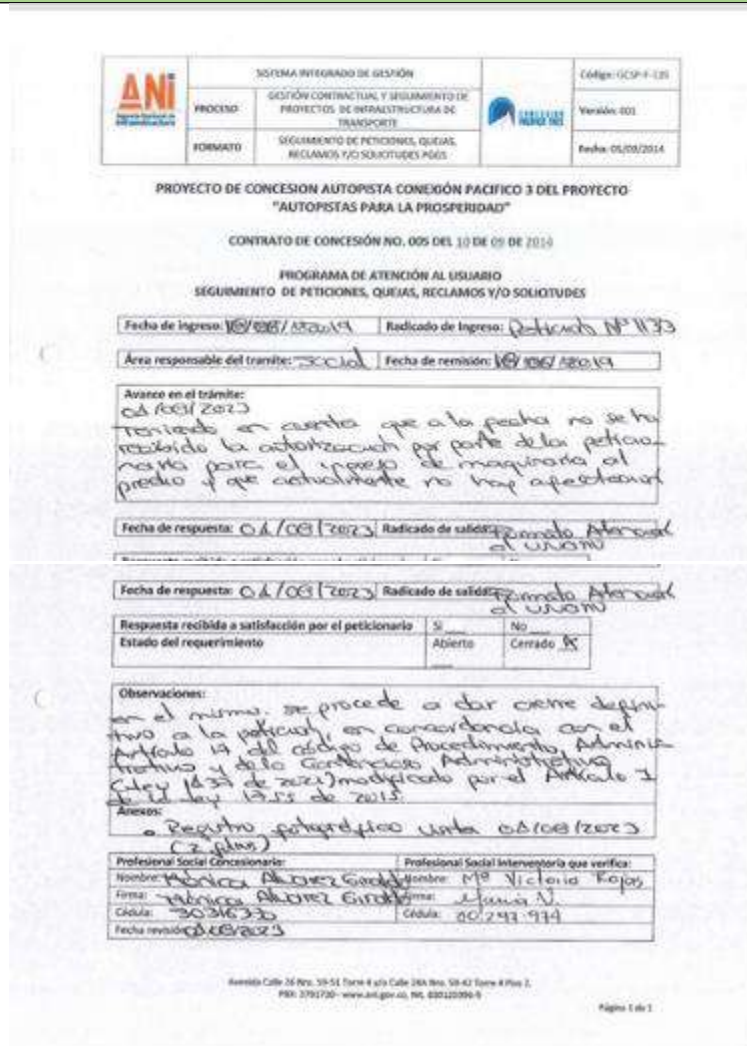 ANI
SISTEMA INTEGRADO DE GESTIÓN
Código: GCSP-F-135
PROCESO
GESTIÓN CONTRACTUAL Y SEGUIMIENTO DE
PROYECTOS DE INFRAESTRUCTURA DE
TRANSPORTE
Versión: 001
FORMATO
SEGUIMIENTO DE PETICIONES, QUEJAS,
RECLAMOS Y/O SOLICITUDES PQGS
Fecha: 05/03/2014
PROYECTO DE CONCESION AUTOPISTA CONEXIÓN PACIFICO 3 DEL PROYECTO
"AUTOPISTAS PARA LA PROSPERIDAD"
CONTRATO DE CONCESIÓN NO. 005 DEL 10 DE 09 DE 2014
PROGRAMA DE ATENCIÓN AL USUARIO
SEGUIMIENTO DE PETICIONES, QUEJAS, RECLAMOS Y/O SOLICITUDES
Fecha de ingreso: Radicado de Ingreso: Petición Nº 1133
Área responsable del tramite: Social Fecha de remisión:
Avance en el trámite:
01/08/2023
Teniendo en cuenta que a la fecha no se ha
recibido la autorización por parte de la peticio-
naria para el ingreso de maquinaria al
predio y que actualmente no hay afectación
Fecha de respuesta: 01/08/2023 Radicado de salida: Formato Atención
al usuario
Fecha de respuesta: 01/08/2023 Radicado de salida: Formato Atención
al usuario
Respuesta recibida a satisfacción por el peticionario Si No
Estado del requerimiento Abierto Cerrado X
Observaciones:
en el mismo, se procede a dar cierre defini-
tivo a la petición, en concordancia con el
Artículo 17 del código de Procedimiento Adminis-
trativo y de lo Contencioso Administrativo
(Ley 1437 de ) modificado por el Artículo 1
de la Ley 1755 de 2015.
Anexos:
• Registro fotográfico visita 01/08/2023
(2 )
Profesional Social Concesionario: Profesional Social Interventoría que verifica:
Nombre: Mónica Alvarez Giraldo Nombre: Mª Victoria Rojas
Firma: Mónica Alvarez Giraldo Firma: María V.
Cédula: Cédula:
Fecha revisión: 01/08/2023
Avenida Calle 26 Nro. 59-51 Torre 4 y/o Calle 24A Nro. 59-42 Torre 4 Piso 2.
PBX: 3791720 - www.ani.gov.co, Nit. 830125996-9
Página 1 de 1